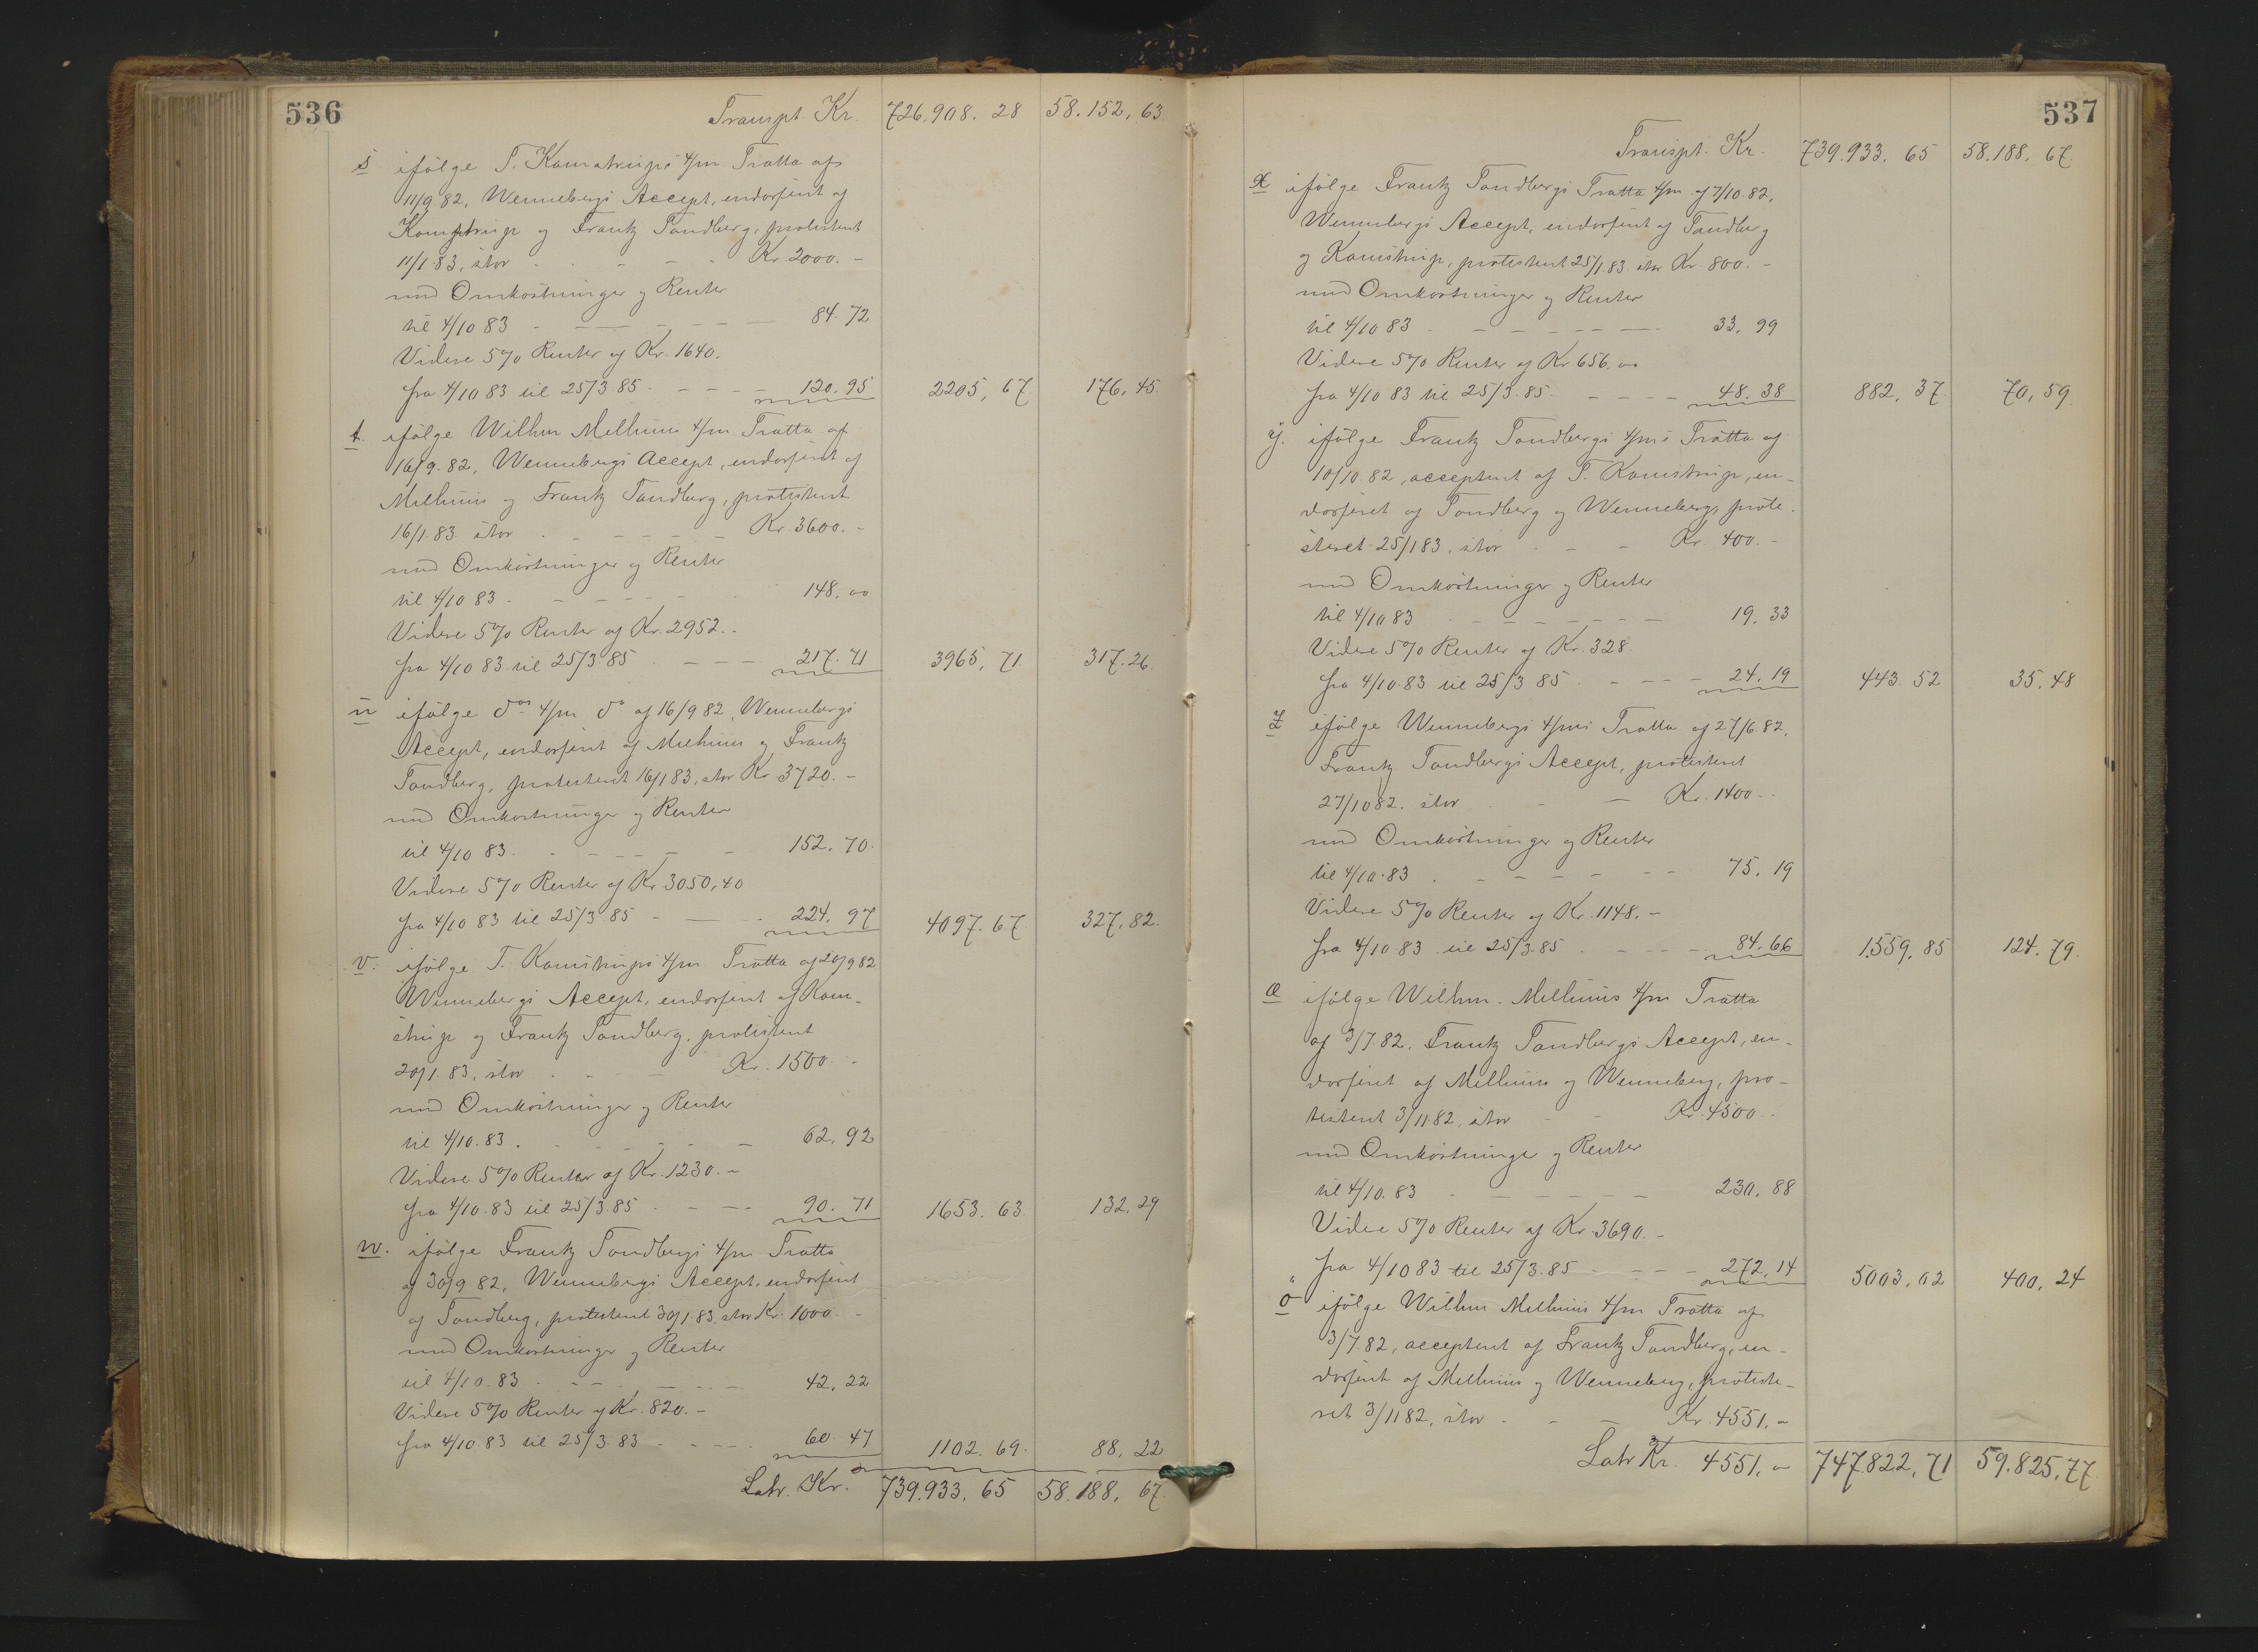 536
Transpt. Kr. 726.908. 28 58.152, 63.
s ifölge T. Kamstrups 4/m Tratta af
11/9 82, Wennebergs Accept, endosseret af
Kamstrup og Frantz Tandberg, protesteret
11/1 83, stor - - - Kr. 2000. -
med Omkostninger og Renter
til 4/10 83 - - - - - 84. 72
Videre 5% Renter af Kr. 1640.
fra 4/10 83 til 25/3. 85. - - - - 120. 95 2205, 67. 176, 45.
t. ifölge Wilhm Melhuus 4/m Tratta af
16/9. 82, Wennebergs Accept, endosseret af
Melhuus og Frantz Tandberg, protesteret
16/1. 83. stor . - - - - Kr. 3600. -
med Omkostninger og Renter
til 4/10 83. - - - - - 148, 00
Videre 5% Renter af Kr. 2952. -
fra 4/10 83 til 25/3 85 . - - - 217. 71 3965, 71. 317. 26.
u ifölge dos 4/m do af 16/9 82, Wennebergs
Accept, endosseret af Melhuus og Frantz
Tandberg, protesteret 16/1 83, stor Kr. 3720. -
med Omkostninger og Renter
til 4/10 83. - - - - - 152. 70.
Videre 5% Renter af Kr. 3050, 40
fra 4/10 83 til 25/3 85 - - - 224. 97 4097. 67. 327, 82.
v. ifölge T. Kamstrups 4/m Tratta af 20/9 82
Wennebergs Accept, endosseret af Kam-
strup og Frantz Tandberg, protesteret
20/1. 83, stor . - - Kr. 1500. -
med Omkostninger og Renter
til 4/10. 83. - - - - - 62, 92
Videre 5% Renter af Kr. 1230. -
fra 4/10. 83 til 25/3. 85 . - - - 90. 71 1653. 63. 132. 29
w. ifölge Frantz Tandbergs 4/m Tratta
af 30/9 82, Wennebergs Accept, endosseret
af Tandberg, protesteret 30/1. 83, stor Kr. 1000. -
med Omkostninger og Renter
til 4/10. 83 . - - - - - 42, 22
Videre 5% Renter af Kr. 820. -
fra 4/10. 83 til 25/3. 83 - - - - 60. 47 1102. 69. 88, 22
Latr. Kr. 739.933. 65 58.188, 67.
537
Transpt. Kr. 739.933. 65 58.188. 67.
x ifölge Frantz Tandbergs Tratta 4/m af 7/10. 82,
Wennebergs Accept, endosseret af Tandberg
og Kamstrup, protesteret 25/1. 83. stor Kr. 800. -
med Omkostninger og Renter
til 4/10 83 . - - - - - 33. 99
Videre 5% Renter af Kr. 656, 00
fra 4/10 83 til 25/3. 85. - - - - 48. 38 882, 37. 70, 59.
y. ifölge Frantz Tandbergs 4/ms Tratta af
10/10. 82, accepteret af T. Kamstrup, en-
dosseret af Tandberg og Wenneberg, prote-
steret 25/1 83, stor . - - Kr. 400. -
med Omkostninger og Renter
til 4/10 83 . - - - - - - 19. 33
Videre 5% Renter af Kr. 328.
fra 4/10. 83 til 25/3 85 . - - - - 24. 19 443. 52 35. 48
z ifölge Wennebergs 4/ms Tratta af 27/6 82,
Frantz Tandbergs Accept, protesteret
27/10 82. stor . - - Kr. 1400. -
med Omkostninger og Renter
til 4/10. 83 . - - - - - - 75. 19
Videre 5% Renter af Kr. 1148. -
fra 4/10. 83 til 25/3. 85 . - - - - 84. 66 1.559. 85 124. 79.
æ ifölge Wilhm. Melhuus 4/m Tratta
af 3/7. 82, Frantz Tandbergs Accept, en-
dosseret af Melhuus og Wenneberg, pro-
testeret 3/11. 82, stor - - Kr. 4500. -
med Omkostninger og Renter
til 4/10. 83 . - - - - - 230. 88
Videre 5% Renter af Kr. 3690. -
fra 4/10 83 til 25/3. 85 - - - - 272. 14 5003. 02 400, 24
ö ifölge Wilhm Melhuus 4/m Tratta af
3/7. 82, accepteret af Frantz Tandberg, en-
dosseret af Melhuus og Wenneberg, proteste-
ret 3/11 82, stor - - - Kr. 4551. -
Latr Kr. 4551, - 747.822, 71 59.825, 77.